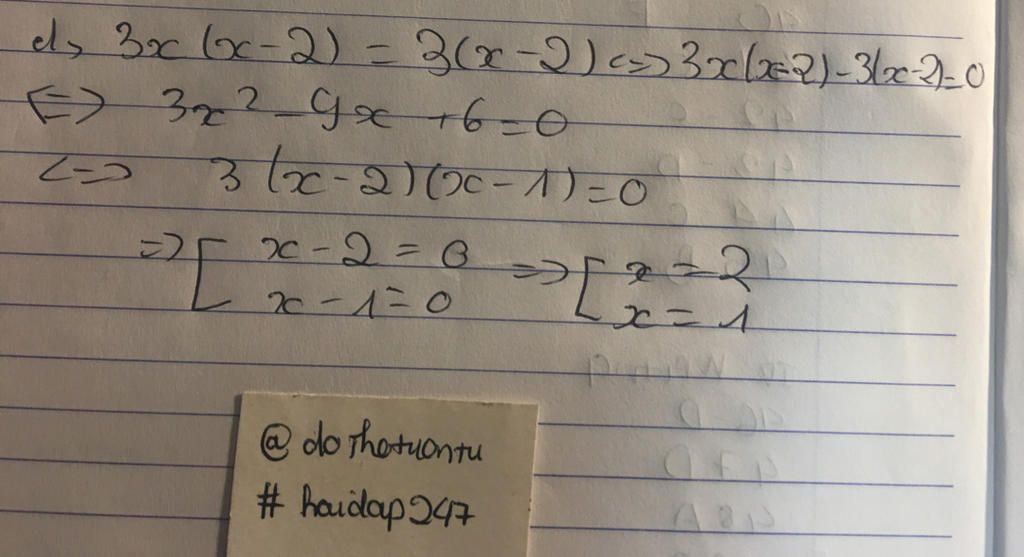 d, 3x(x-2) = 3(x-2) <=> 3x(x-2)-3(x-2)=0
<=> 3x² - 9x +6=0
<=> 3(x-2)(x-1)=0
=> [ x-2=0 => [ x=2
x-1=0 x=1
@dothotuontu
# hoidap247